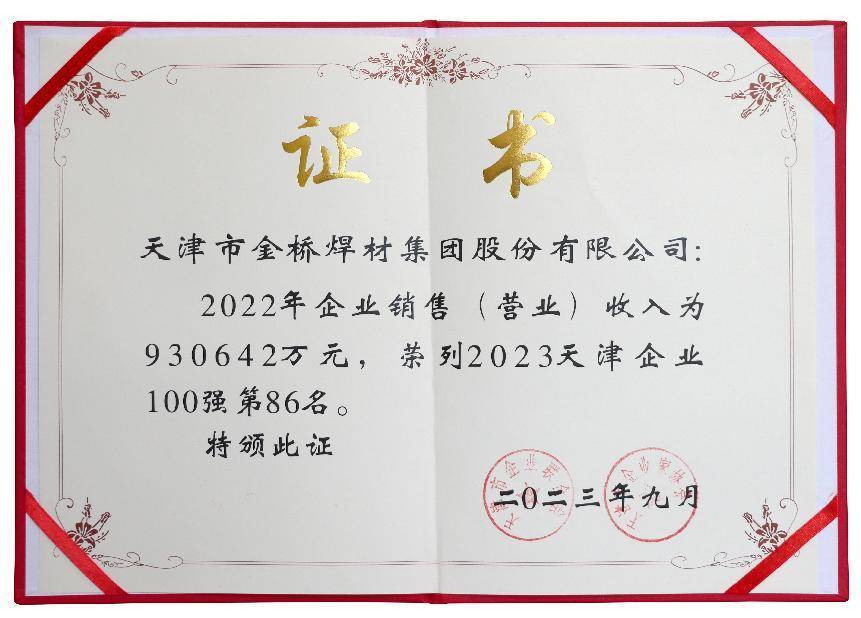 证书
天津市金桥焊材集团股份有限公司:
2022年企业销售(营业)收入为
930642万元,荣列2023天津企业
100强第86名。
特颁此证
二〇二三年九月